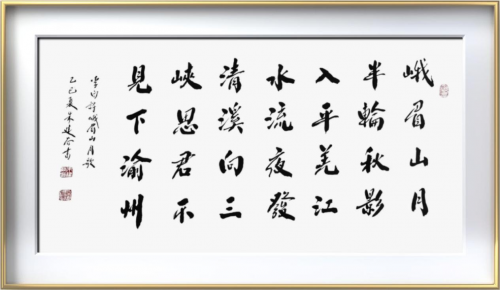 峨眉山月
半輪秋影
入平羌江
水流夜發
清溪向三
峽思君不
見下渝州
李白詩峨眉山月歌
乙巳夏朱書